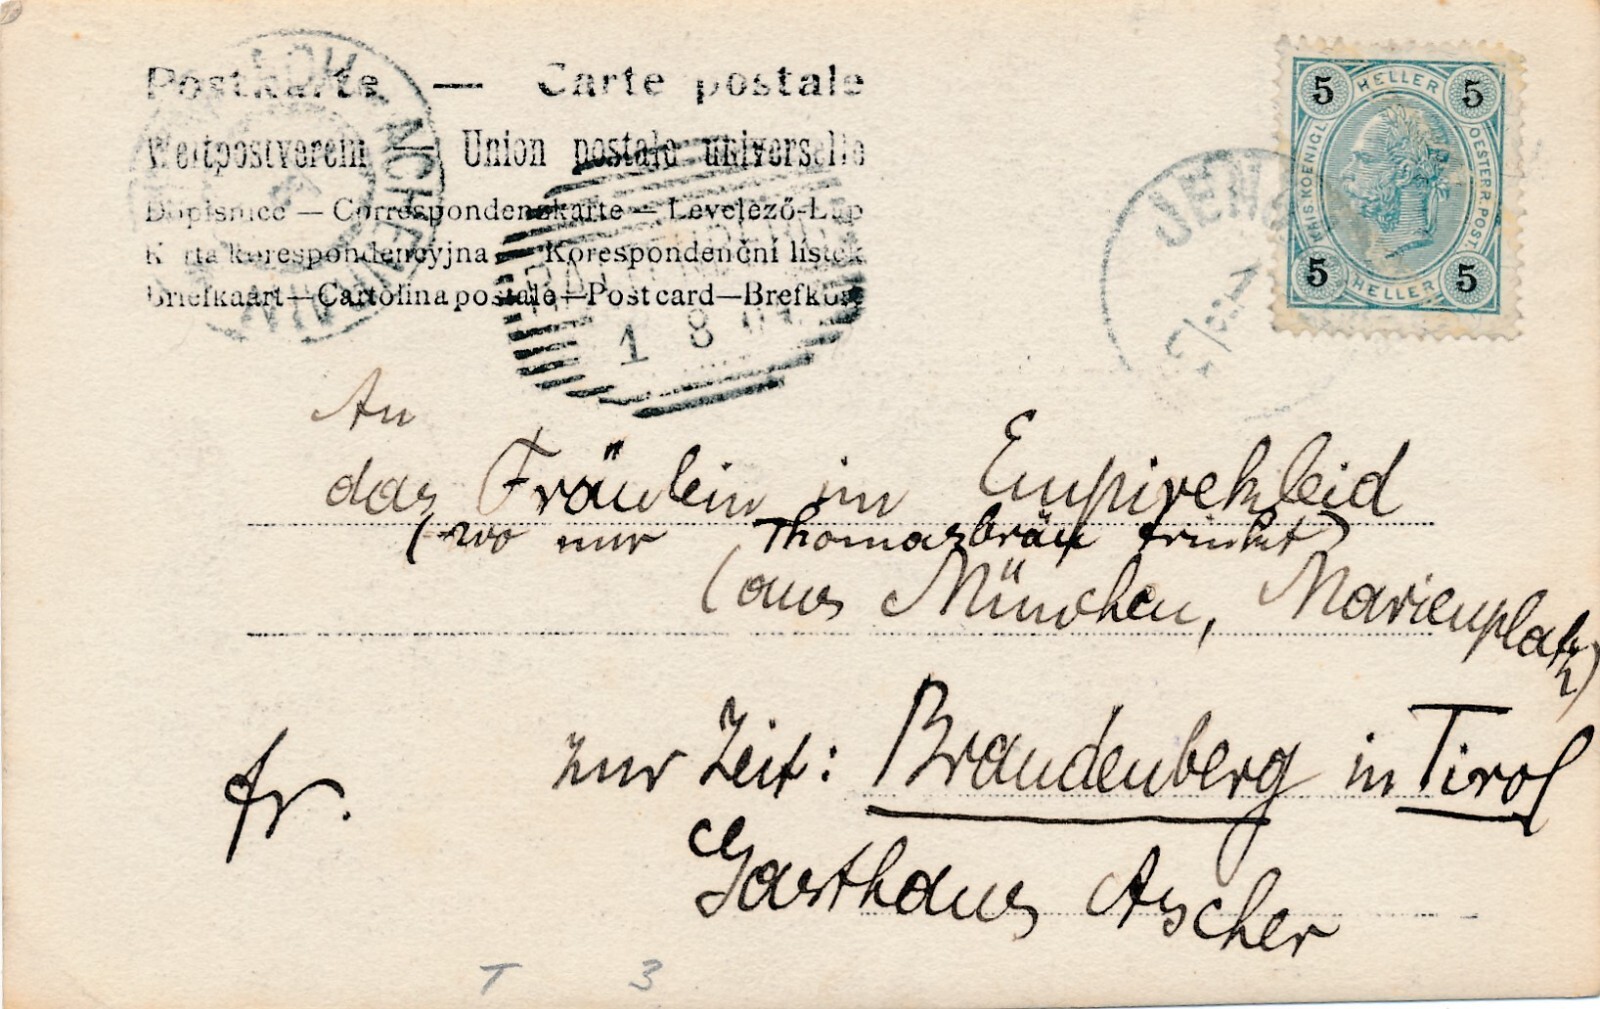 Postkarte — Carte postale
Weltpostverein Union postale universelle
Dopisnice — Correspondenzkarte — Levelező-Lap
Karta korespondencyjna — Korespondenční lístek
Briefkaart—Cartolina postale—Post card—Brefkort
1 8
JENB
5 HELLER 5
KAIS. KOENIGL. OESTERR. POST.
5 HELLER 5
An
das Fräulein im Empirekleid
(wo nur Thomasbräu trinkt)
(aus München, Marienplatz)
fr. zur Zeit: Brandenberg in Tirol
Gasthaus Ascher
T 3